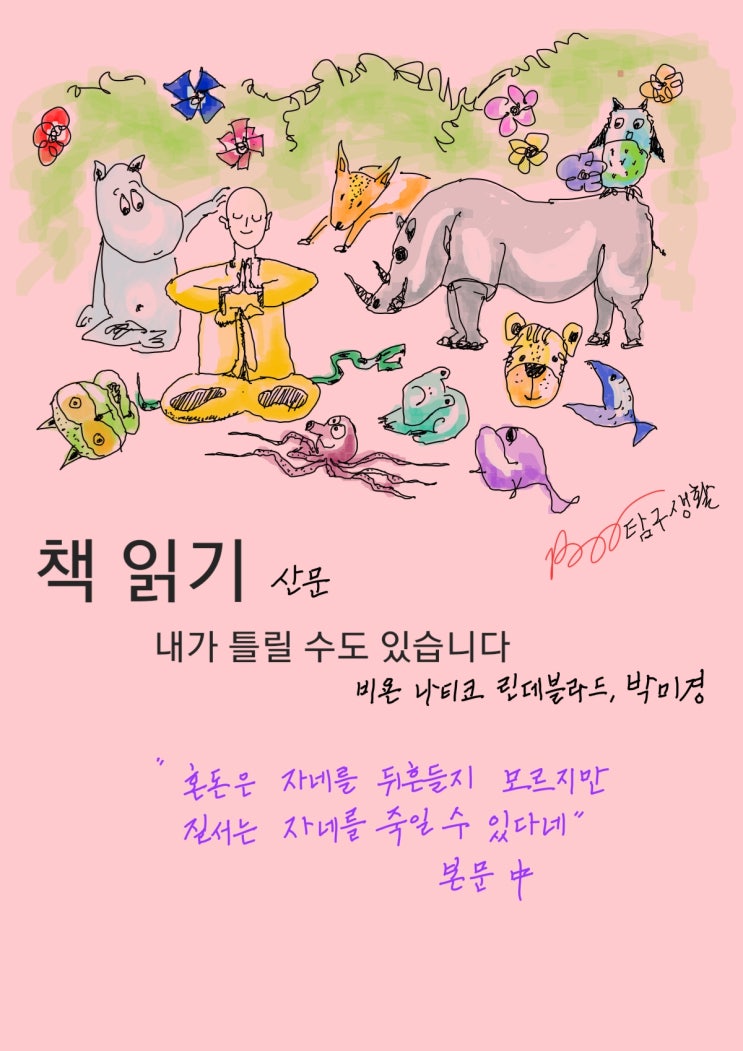 Boo 탐구생활
책 읽기 산문
내가 틀릴 수도 있습니다
비욘 나티코 린데블라드, 박미경
"혼돈은 자네를 뒤흔들지 모르지만
질서는 자네를 죽일 수 있다네"
본문 中